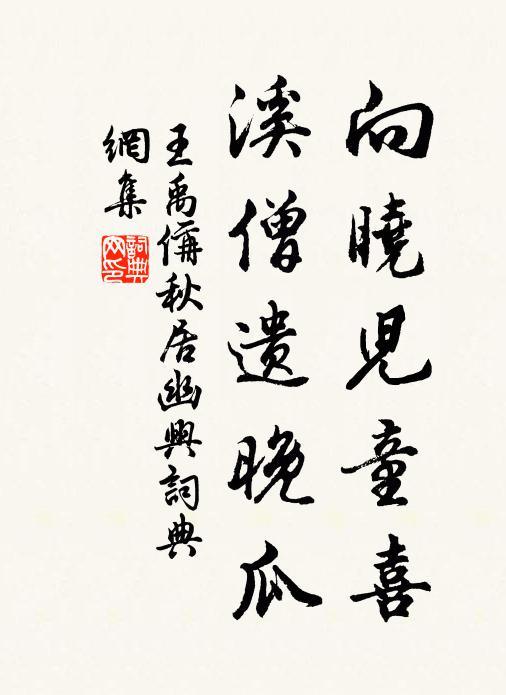 向曉兒童喜
溪僧遺晚瓜
王禹偁秋居幽興詞典
網集
詞典
网印